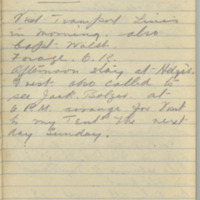 Visit Transport Lines
in morning. also
Capt. Walsh.
Forage. O.K.
Afternoon stay at Hdqrs.
I went also called to
see Jack. at
6 P.M. arrange for Visit
to my Tent the next
day Sunday.